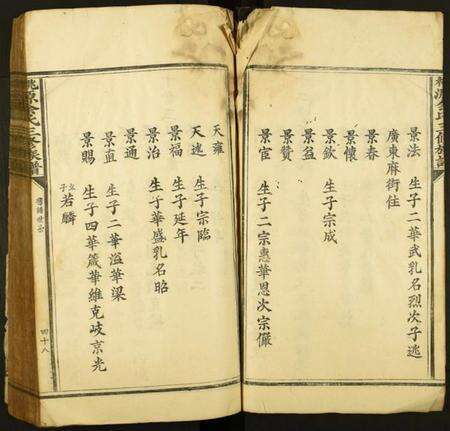 景法 生子二華武乳名烈次子逃
廣東麻街住
景春
景懷
景欽 生子宗成
景益
景贊
景官 生子二宗惠華恩次宗儼
天雍
天速 生子宗臨
景福 生子延年
景治 生子華盛乳名昭
景通
景直 生子二華溢華梁
景賜 生子四華箴華維克岐京光
立子若麟
四十八